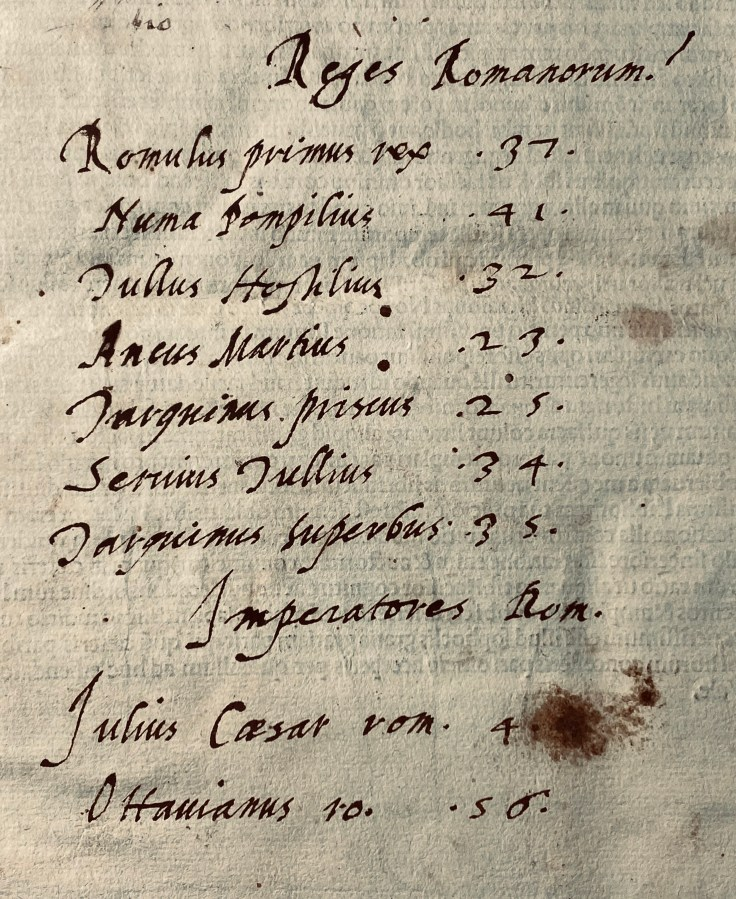 Reges Romanorum.
Romulus primus rex .37.
Numa Pompilius .41.
Tullus Hostilius .32.
Ancus Martius .23.
Tarquinus priscus .25.
Seruius Tullius .34.
Tarquinus superbus .35.
Imperatores Rom.
Julius Cæsar rom. 4.
Ottauianus ro. .56.